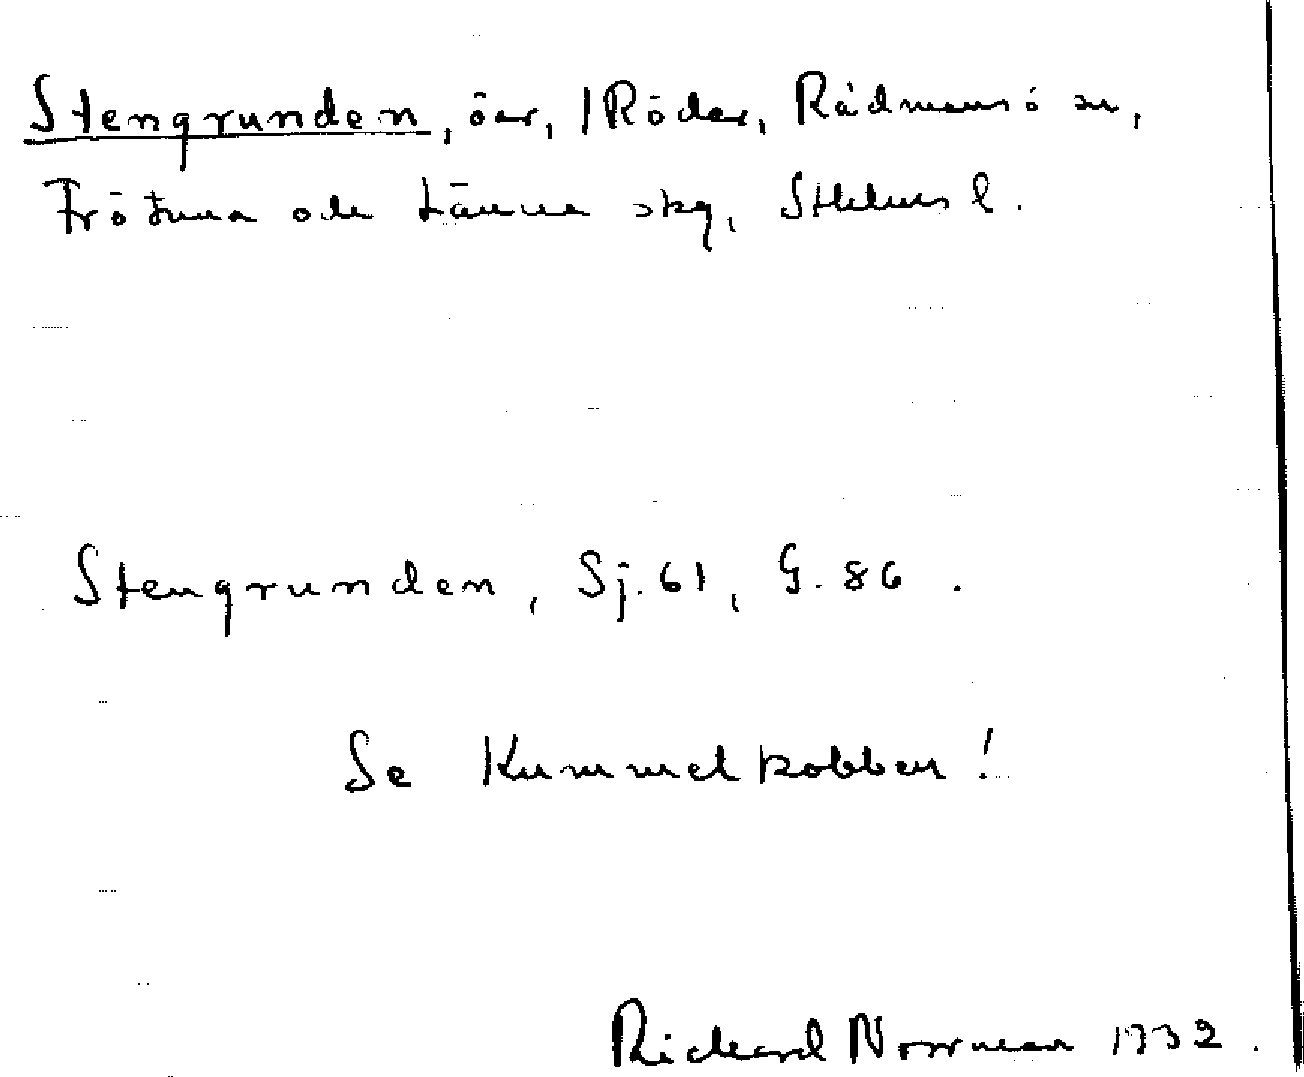 Stengrunden, öar, /Röder, Rådmansö sn,
Frötuna och Länna skg, Sthlms l.
Stengrunden, Sj. 61, G. 86.
Se Kummelkobben!
Rickard Norrman 1932.